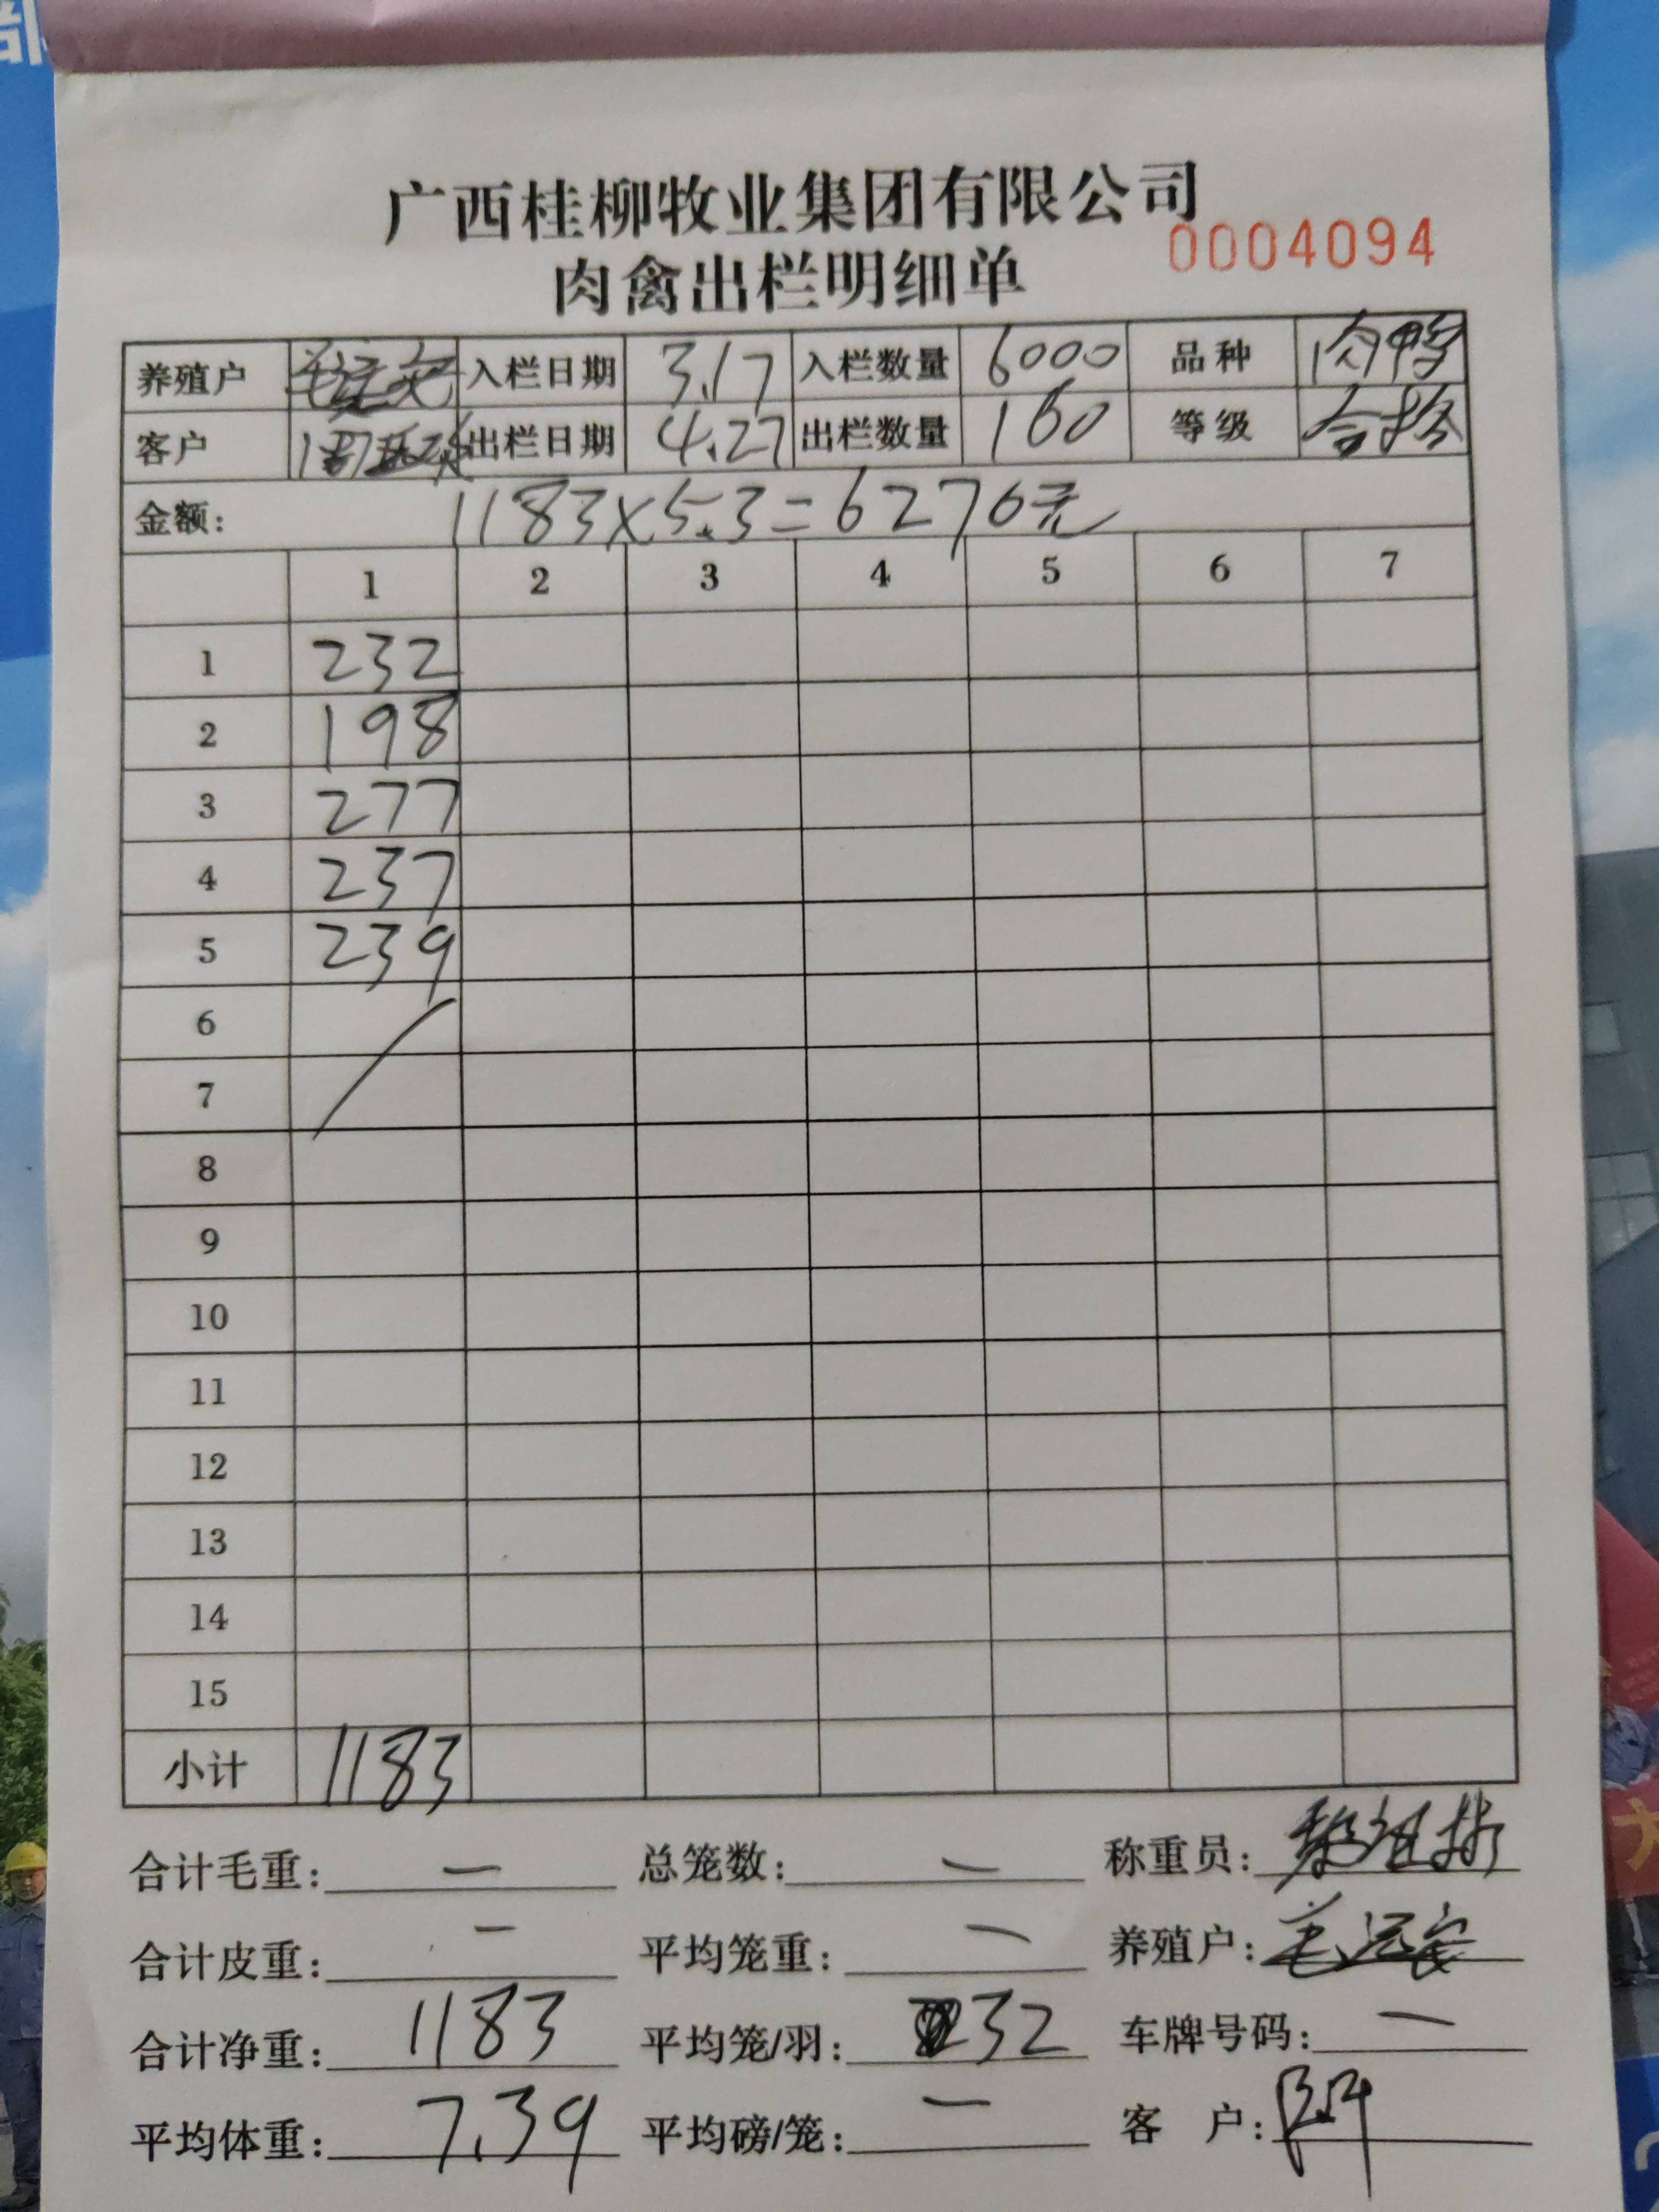 部
广西桂柳牧业集团有限公司
0004094
肉禽出栏明细单
养殖户 入栏日期 3.17 入栏数量 6000 品种 肉鸭
客户 出栏日期 4.27 出栏数量 160 等级 合格
金额: 1183×5.3=6270元
1 2 3 4 5 6 7
1 232
2 198
3 277
4 237
5 239
6
7
8
9
10
11
12
13
14
15
小计 1183
合计毛重: — 总笼数: — 称重员:
合计皮重: — 平均笼重: — 养殖户:
合计净重: 1183 平均笼/羽: 32 车牌号码: —
平均体重: 7.39 平均磅/笼: — 客 户:
大